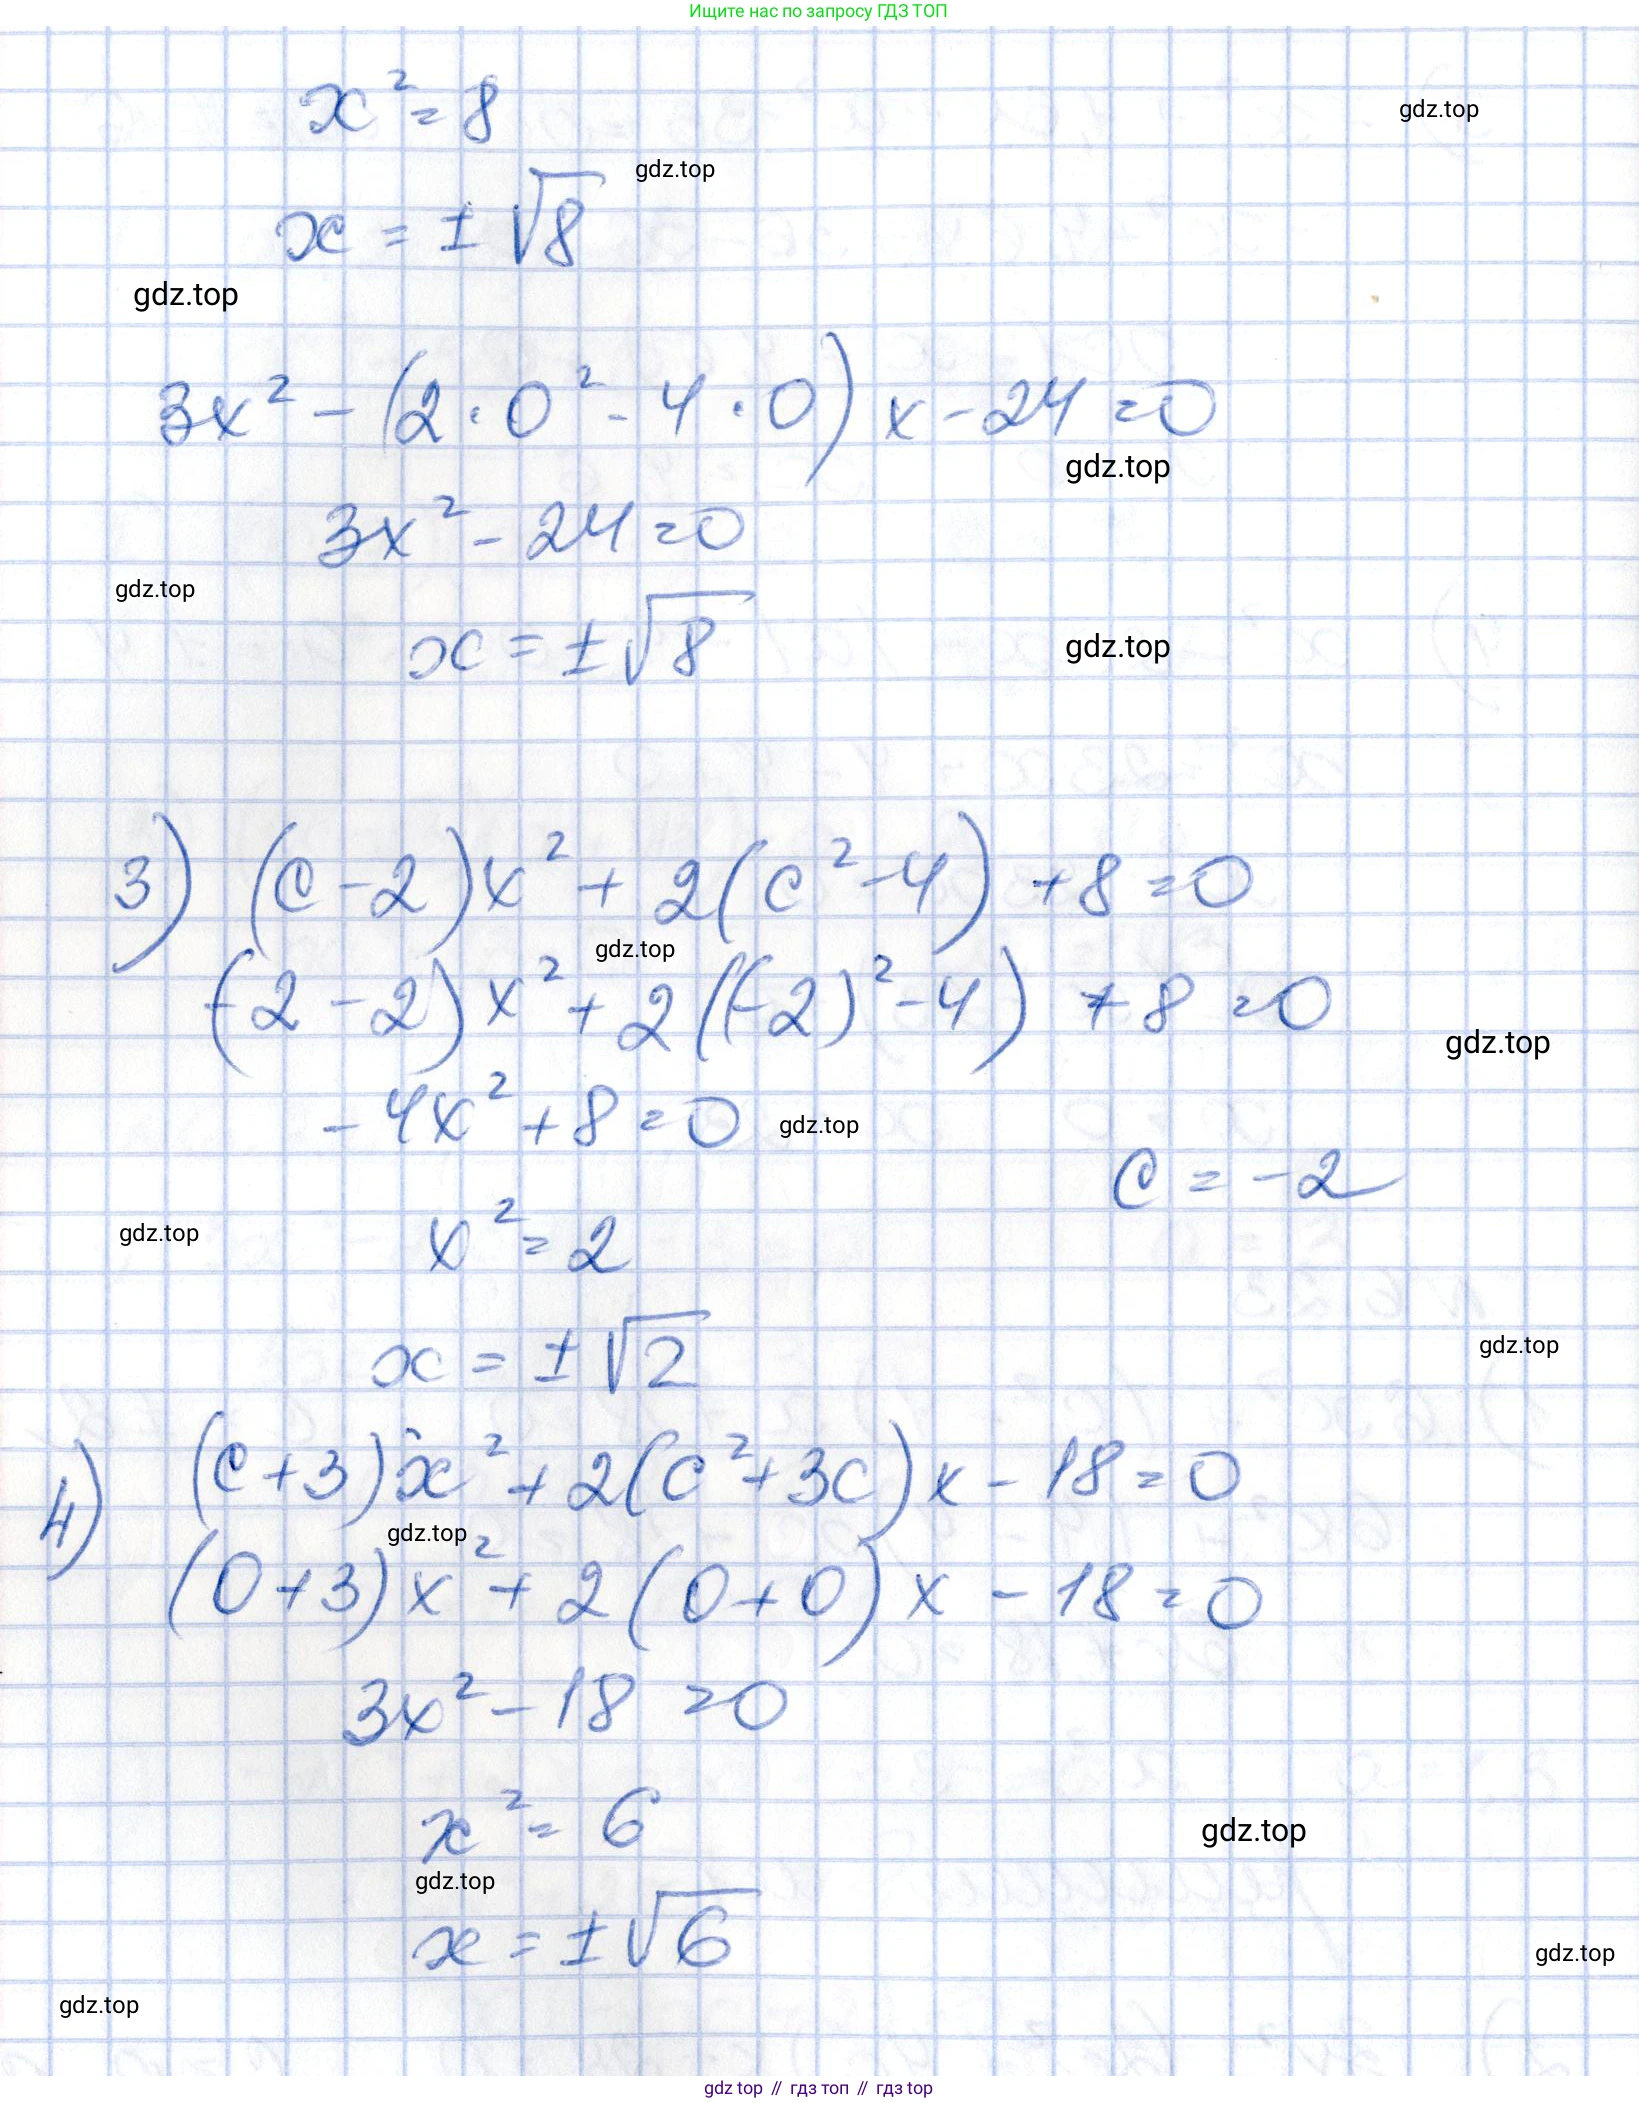 Ищите нас по запросу ГДЗ ТОП
x² = 8
gdz.top
gdz.top
x = ± √8
gdz.top
3x² - (2 · 0² - 4 · 0) x - 24 = 0
gdz.top
3x² - 24 = 0
gdz.top
x = ± √8
gdz.top
3) (c - 2) x² + 2 (c² - 4) + 8 = 0
gdz.top
(-2 - 2) x² + 2 ((-2)² - 4) + 8 = 0
gdz.top
- 4x² + 8 = 0
gdz.top
c = -2
gdz.top
x² = 2
gdz.top
x = ± √2
4) (c + 3) x² + 2 (c² + 3c) x - 18 = 0
gdz.top
(0 + 3) x² + 2 (0 + 0) x - 18 = 0
3x² - 18 = 0
x² = 6
gdz.top
gdz.top
x = ± √6
gdz.top
gdz.top
gdz top // гдз топ // гдз top